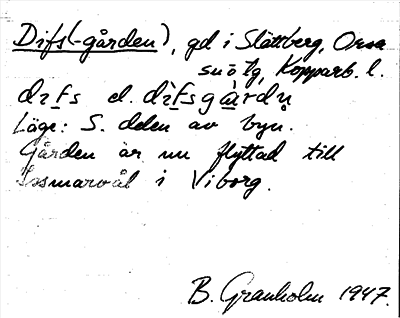 Difs(-gården), gd i Slättberg, Orsa
snötg, Kopparb. l.
dıfs el. dıfsgàrdn̥
Läge: S. delen av byn.
Gården är nu flyttad till
i Viborg.
B. Granholm 1947.